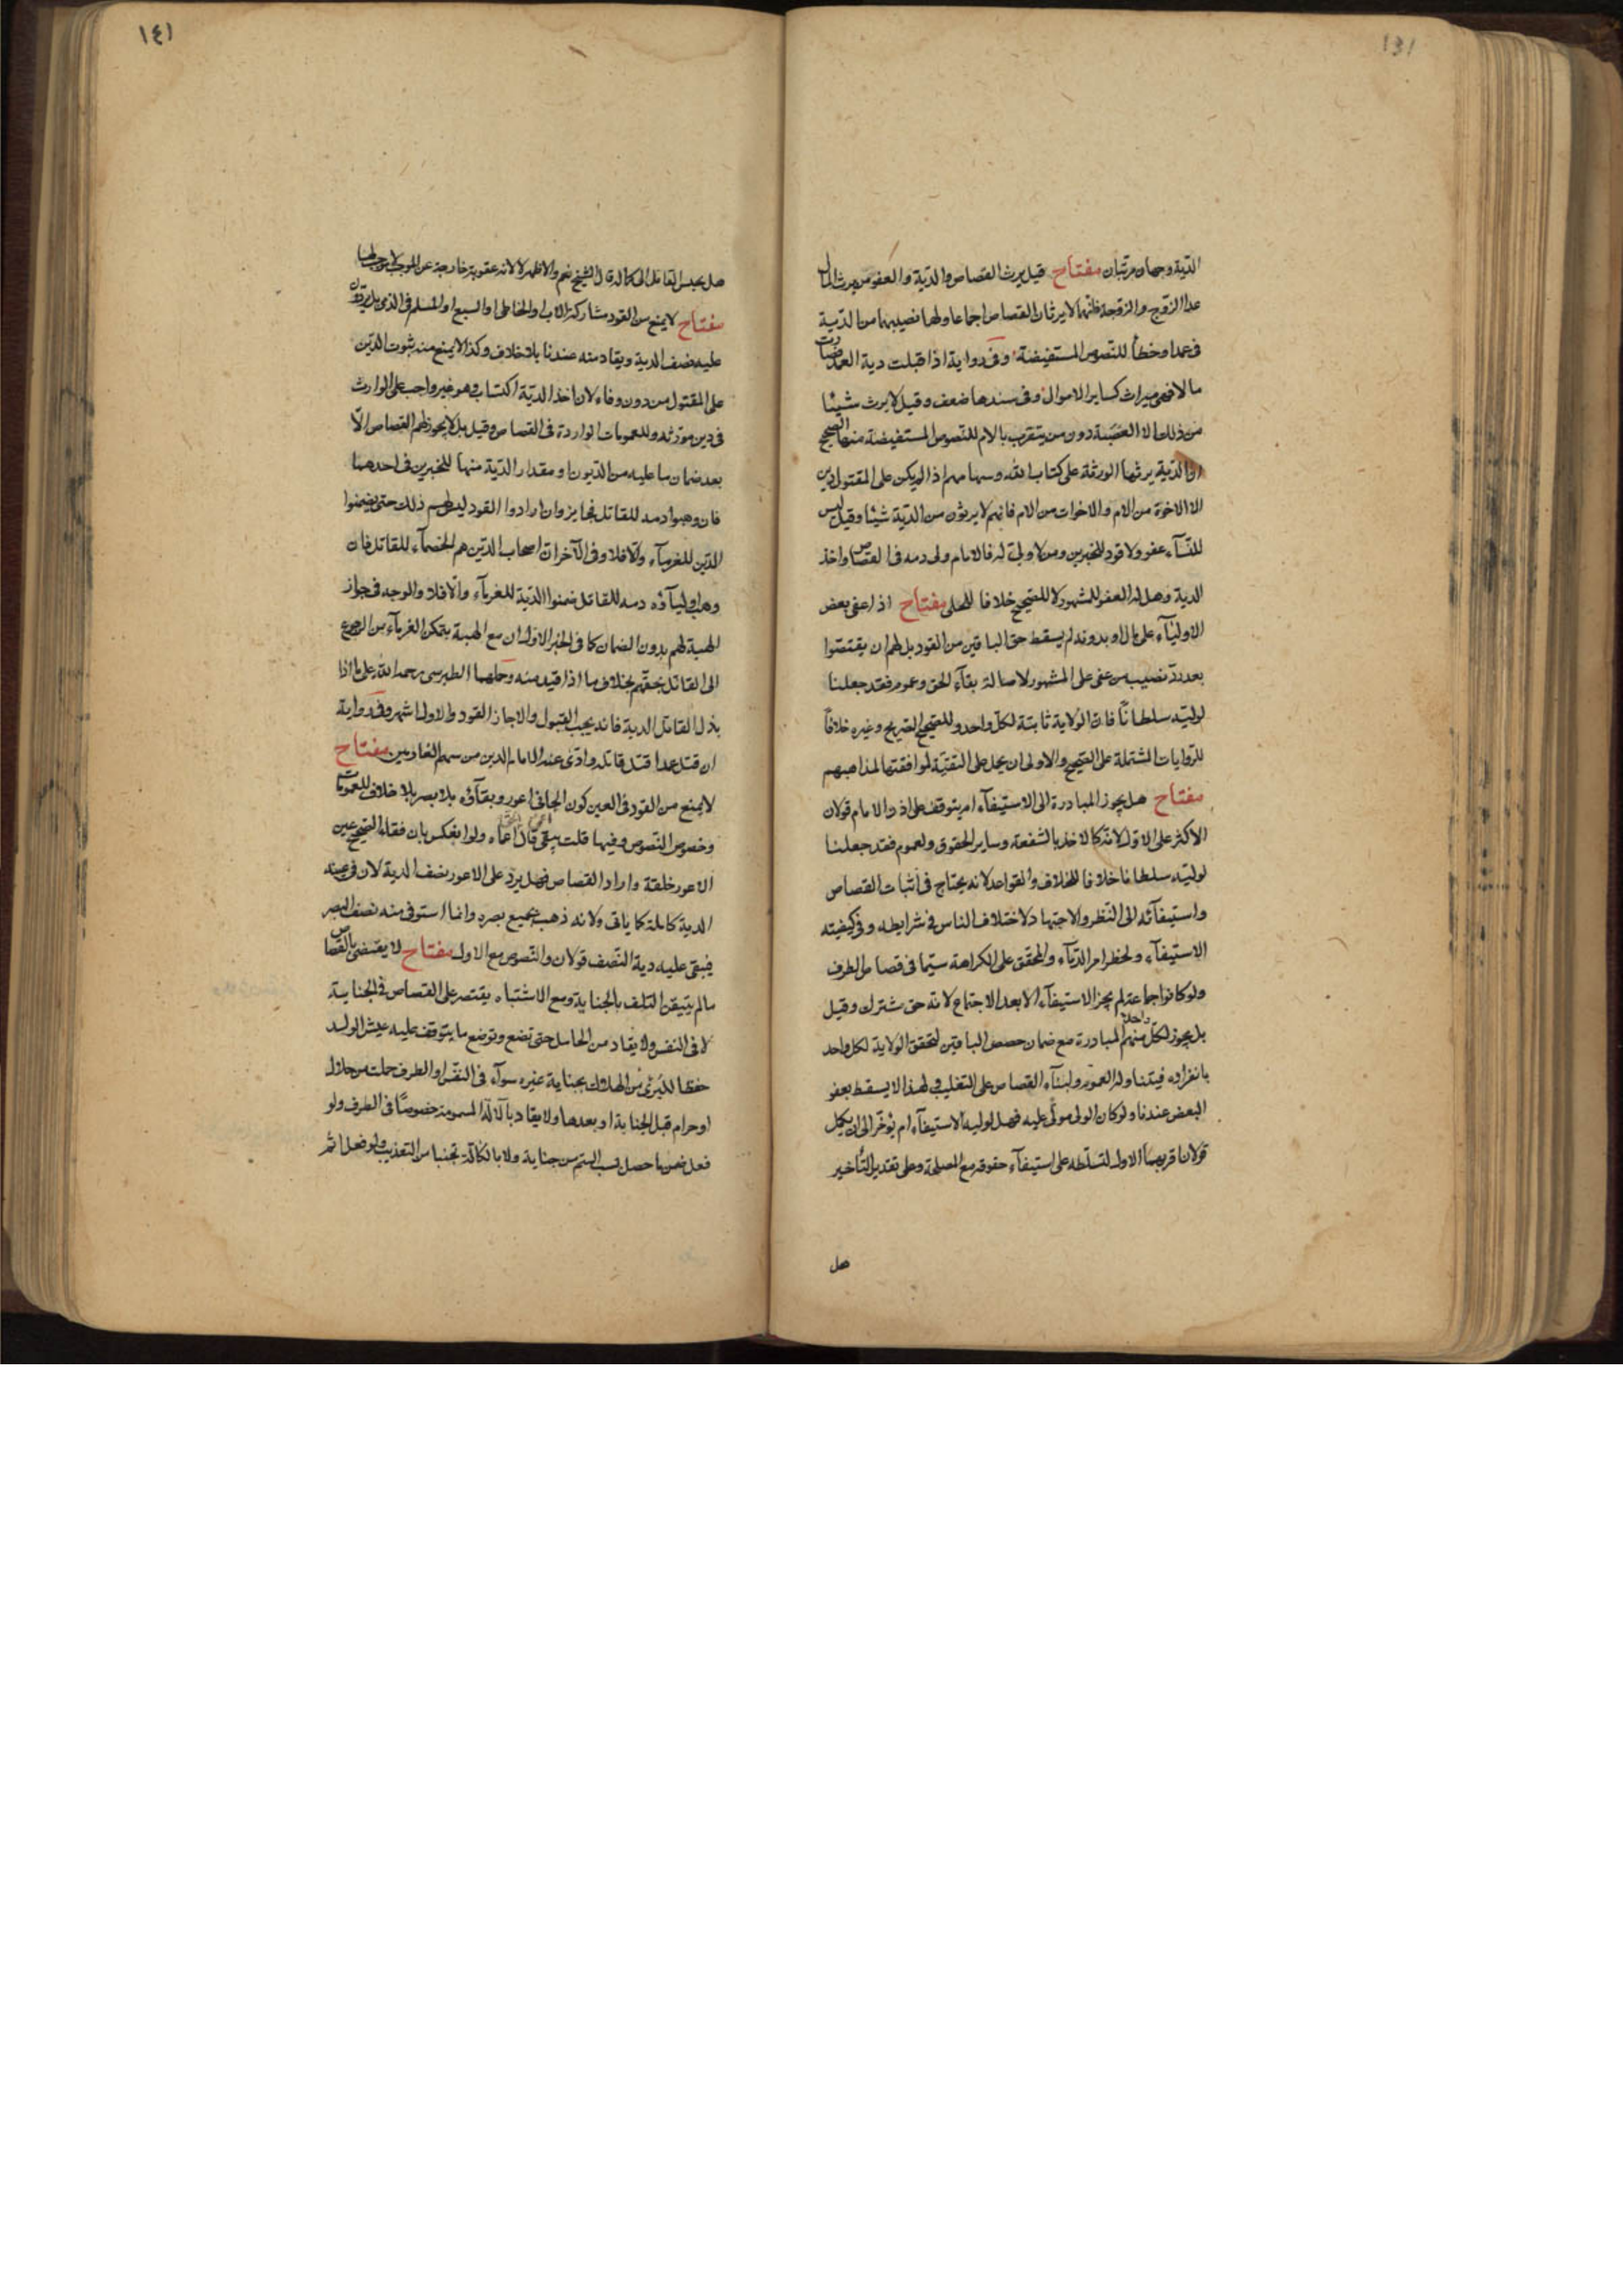 ١٤١
الدّية وجهان مرتّبان مفتاح قيل يرث القصاص والدّية والعفو من يرث المال
عدا الزّوج والزّوجة فانّهما لا يرثان القصاص اجماعا ولهما نصيبهما من الدّية
فى عمد او خطأ للنّصوص المستفيضة وفى رواية اذا قبلت دية العمد فصارت
مالا فهى ميراث كساير الاموال وفى سندها ضعف وقيل لا يرث شيئا
من ذلك الا العصبة دون من يتقرب بالام للنّصوص المستفيضة منها الصحيح
الدّية يرثها الورثة على كتاب الله وسهامهم اذا لم يكن على المقتول دين
الا الاخوة من الام والاخوات من الام فانهم لا يرثون من الدّية شيئا وقيل ليس
للنّسآء عفو ولا قود للخبرين ومن لا ولىّ له فالامام ولى دمه فى القصاص واخذ
الدية وهل له العفو المشهور لا للصّحيح خلافا للحلى مفتاح اذا عفى بعض
الاوليآء على مال او بدونه لم يسقط حق الباقين من القود بل لهم ان يقتصّوا
بعد ردّ نصيب من عفى على المشهور لاصالة بقآء الحق وعموم فقد جعلنا
لوليّه سلطانًا فان الولاية ثابتة لكلّ واحد وللصّحيح الصّريح وغيره خلافاً
للرّوايات المشتملة على الصّحيح والاولى ان يحمل على التقيّة لموافقتها لمذاهبهم
مفتاح هل يجوز المبادرة الى الاستيفآء ام يتوقف على اذن الامام قولان
الاكثر على الاوّل لانّه كالاخذ بالشفعة وساير الحقوق ولعموم فقد جعلنا
لوليّه سلطانا خلافا للخلاف والقواعد لانه يحتاج فى اثبات القصاص
واستيفآئه الى النّظر والاجتهاد لاختلاف الناس فى شرايطه وفى كيفيّته
الاستيفآء ولخطر امر الدّمآء والمحقق على الكراهة سيّما فى قصاص الطرف
ولو كانوا جماعة لم يجز الاستيفآء الا بعد الاجتماع لانّه حق مشترك وقيل
بل يجوز لكلّ واحد منهم المبادرة مع ضمان حصص الباقين لتحقق الولاية لكل واحد
بانفراده فيتناوله العموم ولبنآء القصاص على التغليب ولهذا لا يسقط بعفو
البعض عندنا ولو كان الولى مولّى عليه فهل لوليه الاستيفآء ام يؤخّر الى ان يكمل
قولان اقربهما الاول لتسلّطه على استيفآء حقوقه مع المصلحة وعلى تقدير التأخير
هل
١٤١
هل يحبس القاتل الى كماله قال الشيخ نعم والاظهر لا لانه عقوبة خارجة عن الموجب
مفتاح لا يمنع من القود مشاركة الاب او الخاطى او السبع او المسلم فى الذمى بل يردّون
عليه نصف الدية ويقاد منه عندنا بلا خلاف وكذا لا يمنع منه ثبوت الدّين
على المقتول من دون وفاء لان اخذ الديّة اكتساب وهو غير واجب على الوارث
فى دين مورّثه وللعمومات الواردة فى القصاص وقيل بل لا يجوز لهم القصاص الّا
بعد ضمان ما عليه من الدّيون او مقدار الدّية منها للخبرين فى احدهما
فان وهبوا دمه للقاتل فجايز وان ارادوا القود ليس لهم ذلك حتى يضمنوا
الدّين للغرمآء والّا فلا وفى الآخر ان اصحاب الدّين هم الخصمآء للقاتل فان
وهب اوليآؤه دمه للقاتل ضمنوا الدّية للغرمآء والّا فلا والوجه فى جواز
الهبة لهم بدون الضمان كما فى الخبر الاوّل ان مع الهبة يتمكن الغرمآء من الرجوع
الى القاتل بحقّهم بخلاف ما اذا قيد منه وحملهما الطبرسى رحمه الله على ما اذا
بذل القاتل الدية فانه يجب القبول والا جاز القود والاول اشهر وفى رواية
ان قتل عمدا قتل قاتله وادّى عنه الامام الدين من سهم الغارمين مفتاح
لا يمنع من القود فى العين كون الجانى اعور وبقآؤه بلا بصر بلا خلاف للعمومات
وخصوص النّصوص وفيها قلت يبقى اعمى قال الحق اعماه ولو انعكس بان فقأ الصّحيح عين
الاعور خلقة واراد القصاص فهل يردّ على الاعور نصف الدية لان فى عينه
الدية كاملة كما ياتى ولانه ذهب جميع بصره وانما استوفى منه نصف البصر
فيبقى عليه دية النّصف قولان والنّصوص مع الاول مفتاح لا يقضى بالقصاص
ما لم يتيقن التلف بالجناية ومع الاشتباه يقتصر على القصاص فى الجناية
لا فى النفس ولا يقاد من الحامل حتى تضع وترضع ما يتوقف عليه عيش الولد
حفظا للبرئ من الهلاك بجناية غيره سوآء فى النفس او الطرف حملت من حلال
او حرام قبل الجناية او بعدها ولا يقاد بالآلة المسمومة خصوصًا فى الطرف ولو
فعل ضمن ما حصل بسبب السّم من جناية ولا بالكالّة تجنبا من التعذيب ولو فعل اثم